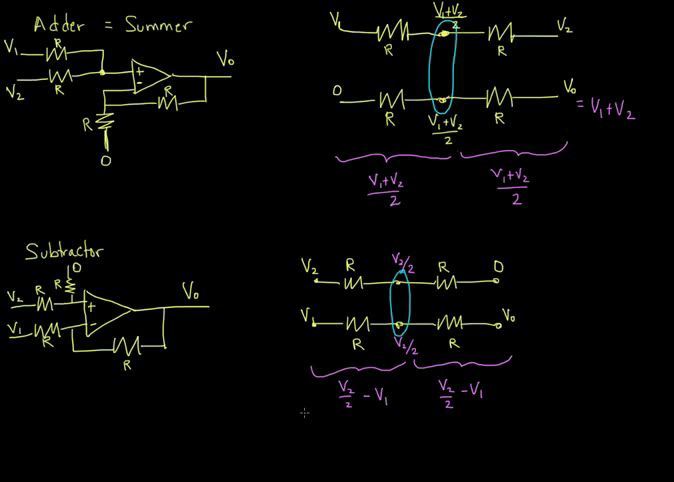 Adder = Summer
V₁
R
V₂
R
+
−
R
V₀
R
0
V₁
R
V₁+V₂/2
R
V₂
0
R
V₁+V₂/2
R
V₀
= V₁+V₂
V₁+V₂/2
V₁+V₂/2
Subtractor
0
R
V₂
R
+
V₁
R
−
R
V₀
V₂
R
V₂/2
R
0
V₁
R
V₂/2
R
V₀
V₂/2 − V₁
V₂/2 − V₁